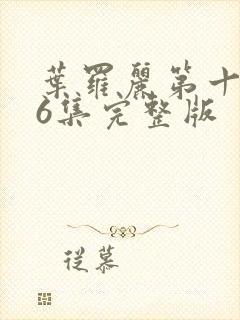 葉羅麗第十
6集完整版
從慕